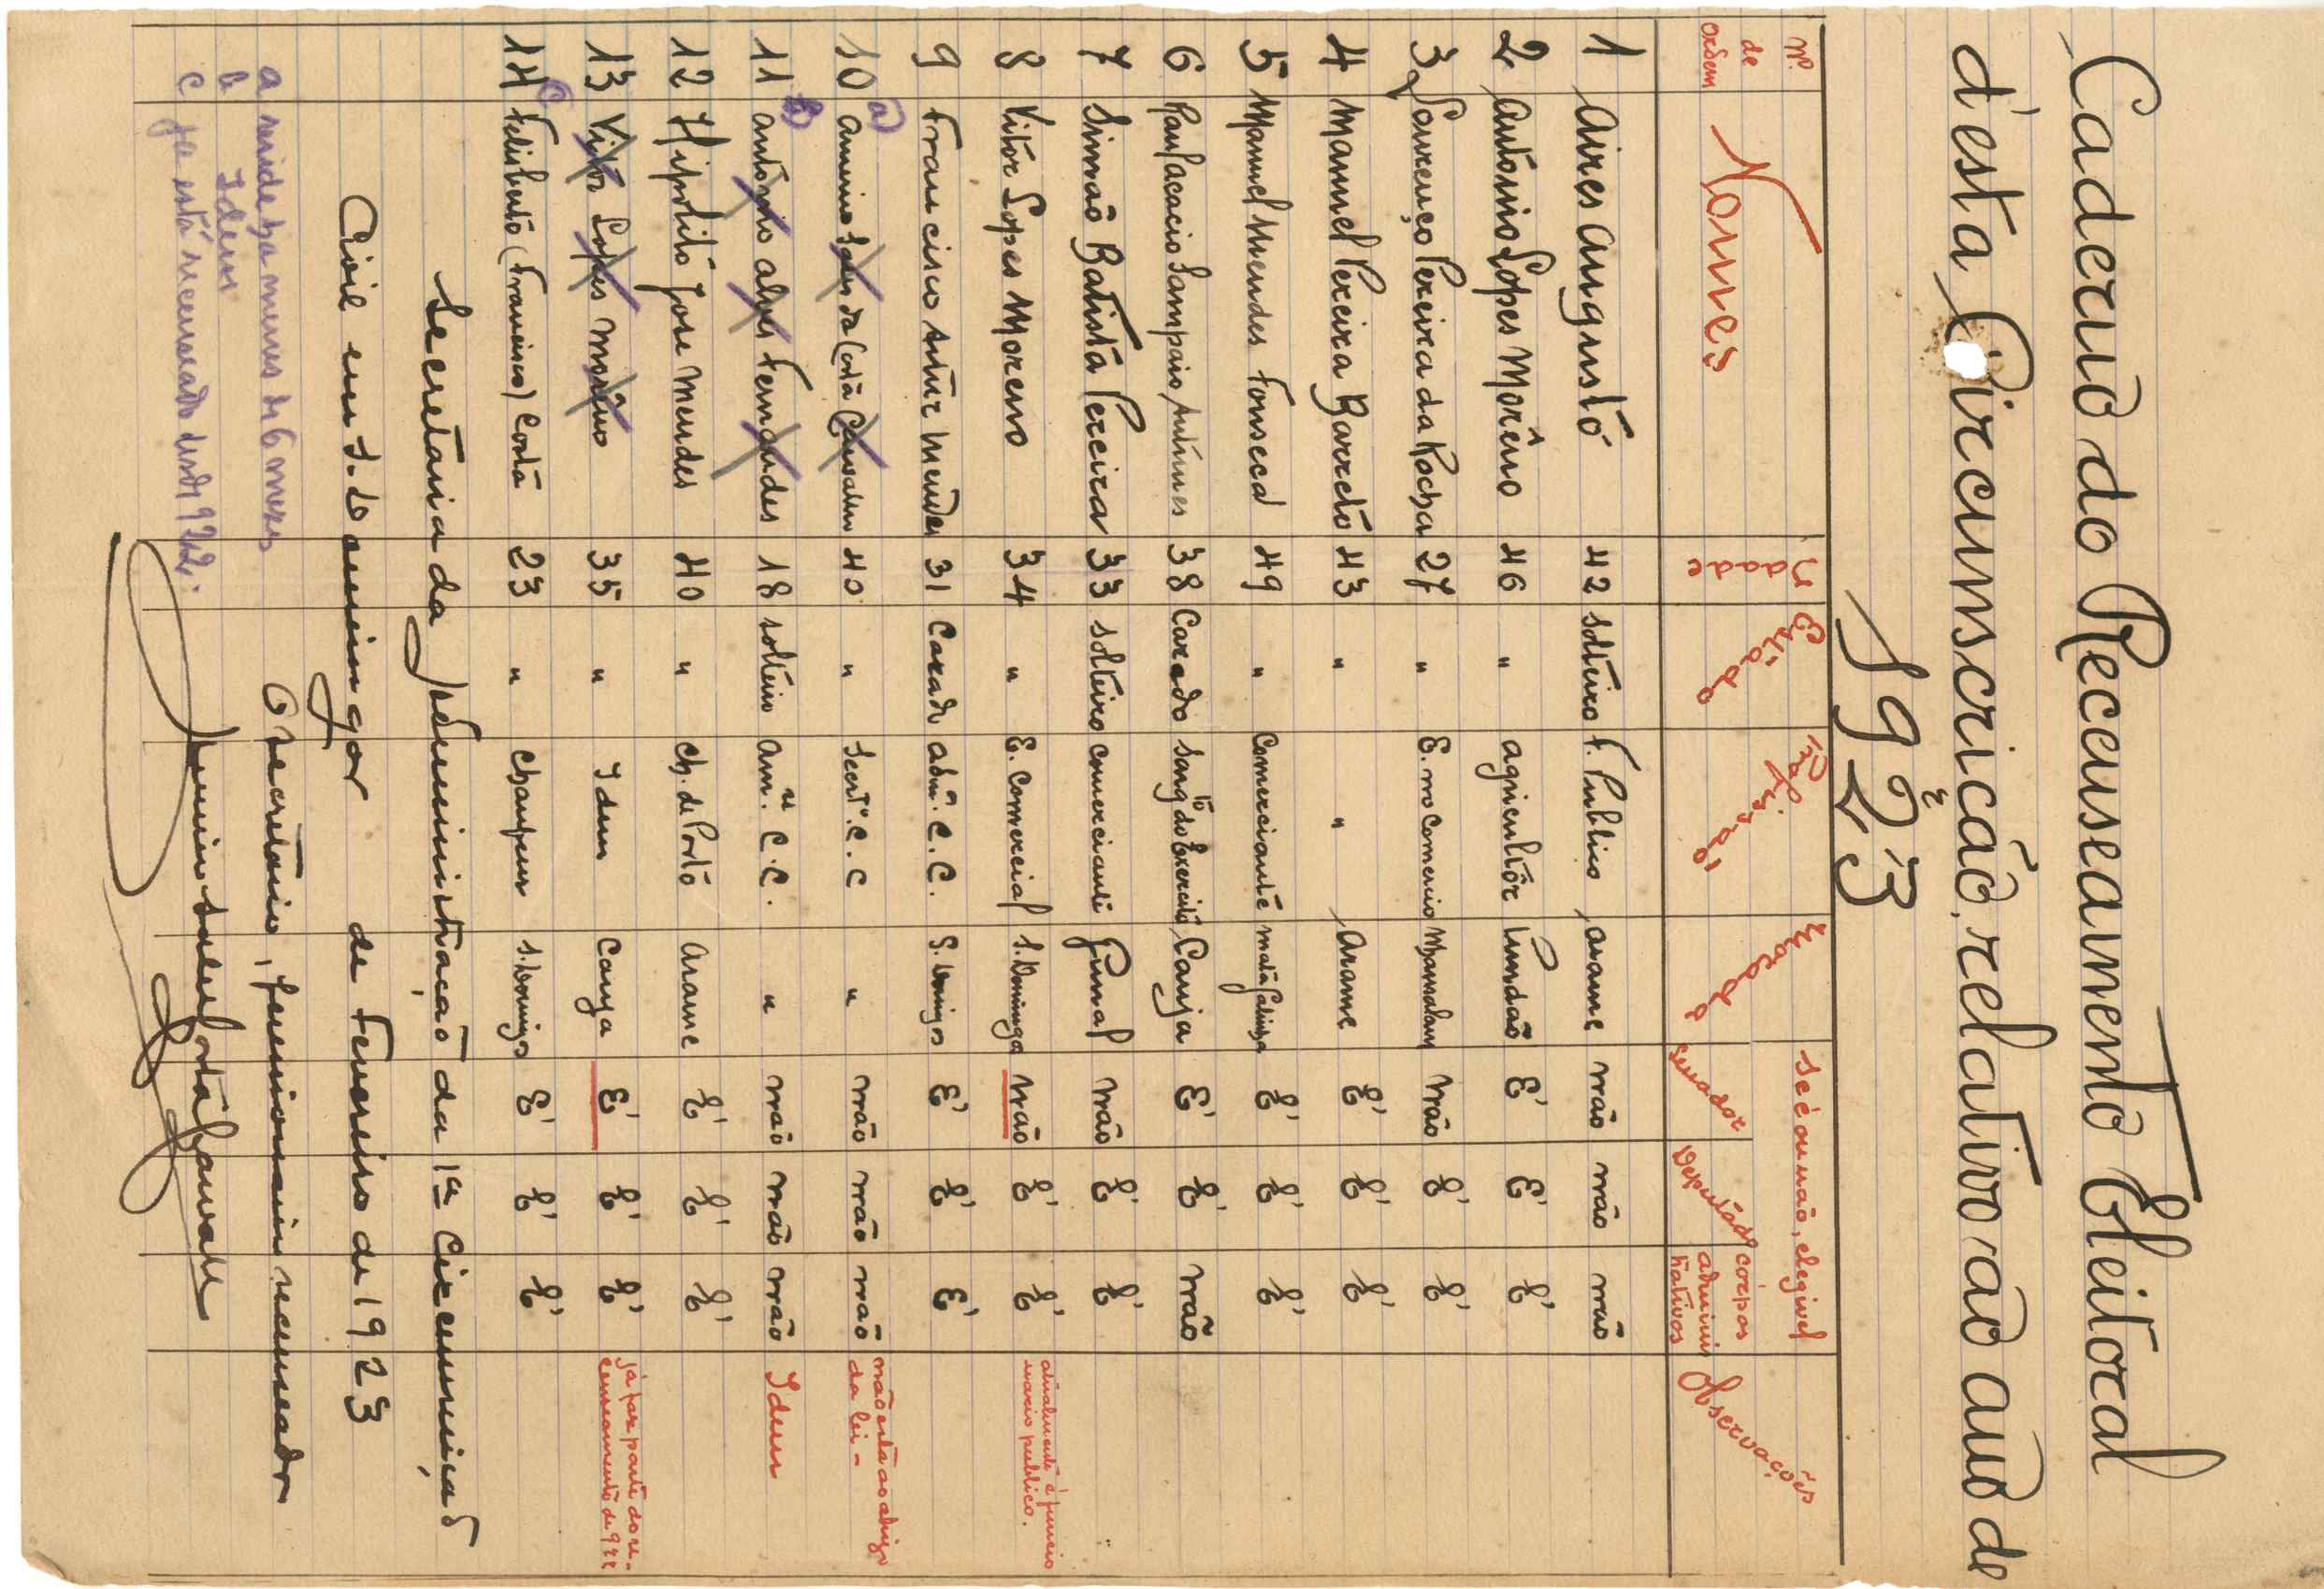 Caderno do Recenseamento Eleitoral
d'esta Circunscrição, relativo ao ano de
1923
Nº. de ordem Nomes Idade Estado Profissão Morada Se é ou não, elegivel Observações
Senador Deputado corpos administrativos
1 Aires Augusto 42 solteiro F. Publico Arame não não não
2 Antonio Lopes Morêno 46 " agricultôr Fundão E' E' E'
3 Lourenço Pereira da Rocha 27 " E. no Comercio não E' E'
4 Manuel Pereira Barreto 43 " " Arame E' E' E'
5 Manuel Mendes Fonseca 49 " Comerciante E' E' E'
6 Raul Acacio Sampaio Antunes 38 Casado Sargto do Exercito Canja E' E' não
7 Simão Batista Pereira 33 solteiro comerciante Funal não E' E'
8 Vitor Lopes Moreno 34 " E. Comercial S. Domingos não E' E' atualmente é funcionario publico.
9 Francisco Artur Mendes 31 Casado admn. C. C. S. Domingos E' E' E'
10 a) da Costa 40 " Secrt.º C. C " não não não não está ao abrigo da lei -
11 b) Antonio Alves Fernandes 18 solteiro C. C. " não não não Idem
12 Hipolito José Mendes 40 " ch. de Porto Arame E' E' E'
13 Vitor Lopes Morêno 35 " Idem Canja E' E' E' já faz parte do recenseamento de 922
14 c) Felisberto (Francisco) Costa 23 " Chaufeur S. Domingos E' E' E'
Secretaria da Administração da 1ª Circunscrição
Civil em de Fevereiro de 1923
O secretário, funcionario recenseador
a reside ha menos de 6 mezes
b Idem
c ja está recenseado desde 922.